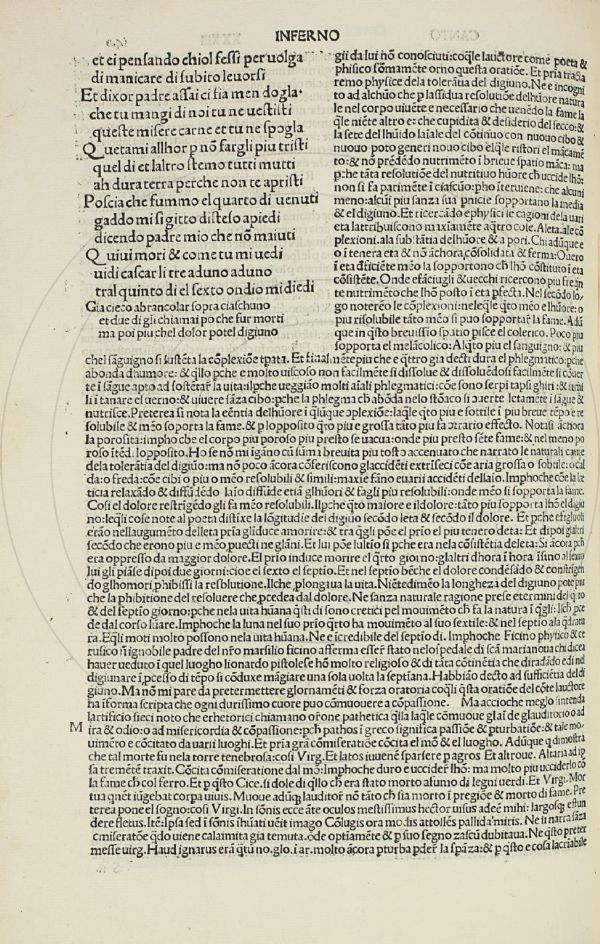 INFERNO
et ei pensando chiol fessi per uolga
di manicare di subito leuorsi
Et dixor padre assai ci fia men dogla
che tu mangi di noi tu ne uestisti
queste misere carne et tu ne spogla
Quetami allhor p nõ fargli piu tristi
quel di et laltro stemo tutti mutti
ah dura terra perche non te apristi
Poscia che fummo el quarto di uenuti
gaddo mi si gitto disteso apiedi
dicendo padre mio che nõ maiuti
Quiui mori & come tu mi uedi
uidi cascar li tre aduno aduno
tral quinto di el sexto ondio mi diedi
Gia cieco abrancolar sopra ciaschuno
et due di gli chiamai po che fur morti
ma poi piu chel dolor potel digiuno
gli da lui nõ conosciuti: lauctore come poeta &
phisico orno questa oratiõe. Et pria
remo physice dela tolerãtia del digiuno. Ne e incognito
ad alchuo che p lassidua resolutiõe delhuore natura
le nel corpo uiuẽte e necessario che uenẽdo la fame
niẽte altro e: che cupidita & desiderio del secco: &
la sete del cõtinuo con nuouo cibo &
nuouo poto generi nuouo cibo elqle ristori el
to: & nõ prẽdẽdo nutrimẽto ĩ brieue spatio mãca: ma
pche tãta resolutiõe del nutritiuo huore
non si fa parimẽte ĩ ciascũo: che alcuni
meno: alcui piu sanza sua sopportano la inedia
& el digiuno. Et ricercãdo ephysici le cagioni dela uari
eta lattribuiscono maxiamẽte cose. Aleta: ale cõ
plexioni. ala substãtia delhuore & a pori. Chi adũque e
o ĩ tenera eta & nõ anchora cõsolidata & ferma. Ouero
ĩ eta meno la sopportono ch lhõ cõstituto ĩ eta
cõsistẽte. Onde efãciugli & uecchi ricercono piu
te nutrimẽto che lhõ posto ĩ eta pfecta. Nel secõdo lo
go noterẽo le cõplexioni: nelequali qto meno e lhuore o
piu risolubile tãto meno si puo sopportar la fame. Adũ
que in qsto breuissio spatio pisce el colerico. Poco piu
sopporta el melãcolico: Alqto piu el sanguigno: & piu
chel sãguigno si sustẽta la cõplexiõe tpata. Et finalmẽte piu che qttro gia decti dura el phlegmatico: pche
abonda dhumore: & qllo pche e molto uiscoso non facilmẽte si dissolue & dissoluẽdosi facilmẽte si cõuer
te ĩ sãgue apto ad sostẽtar la uita: ilpche ueggião molti aiali phlegmatici: cõe sono serpi tapsi ghiri: &
li ĩ tanare el uerno: & uiuere sãza cibo: pche la phlegma ch abõda nelo stõaco si cõuerte letamẽte ĩ sãgue &
nutrisce. Preterea si nota la delhuore ĩ qlũque cõplexiõe: laqle qto piu e sottile ĩ piu breue tẽpo e re
solubile & mẽo soporta la fame. & p lopposito qto piu e grossa tãto piu fa cõtrario effecto. Notasi ãchora
la porosita: impho che el corpo piu poroso piu presto se uacua: onde piu presto sẽte fame: & nel meno po
roso ĩtẽd. lopposito. Ho se nõ mi igãno cũ sũma breuita piu tosto accenuto che narrato le naturali cause
dela tolerãtia del digiũo: ma nõ poco ãcora cõferiscono glaccidẽti extrĩseci cõe aria grossa o sobtile: o cal
da: o freda: cõe cibi o piu o mẽo resolubili & simili: maxie fãno euarii accidẽti dellaio. Imphoche cõe la le
ticia relaxãdo & diffũdẽdo laio diffũde etiã glhũori & fagli piu resolubili: onde mẽo si sopporta la fame.
Cosi el dolore restrigẽdo gli fa mẽo resolubili. Ilpche qto maiore e ildolore: tãto piu sopporta lhõ el digiu
no: leqli cose note al poeta distixe la lõgitudie del digiuo secõdo leta & secõdo il dolore. Et pche efigliuoli
erão nellaugumẽto delleta pria gliduce amorire: & tra qgli põe el prio el piu tenero deta: Et dipoi glaltri
secõdo che erono piu e mẽo. puecti ne glãni. Et lui põe lultio si pche era nela cõsistẽtia deleta: Si ãcora pch
era oppresso da magior dolore. El prio induce morire el qrto giorno: glaltri dhora ĩ hora ĩsino al sexto
lui gli piãse dipoi due giorni: cioe el sexto el septio. Et nel septio bẽche el dolore condẽsãdo & constrigen
do glhomori phibissi la resolutione. Ilche plongaua la uita. Niẽtedimẽo la longheza del digiuno pote piu
che la phibitione del resoluere che pcedea dal dolore. Ne sanza naturale ragione prese etermini del qrto
& del septio giorno: pche nela uita hũana qsti di sono cretici pel mouimẽto ch fa la natura ĩ qgli:
de dal corso luare. Imphoche la luna nel suo prio qrto ha mouimẽto al suo sextile: & nel septio ala qdrata
ra. Eqli moti molto possono nela uita hũana. Ne e icredibile del septio di. Imphoche Ficino physico & ce
rusico nõ ignobile padre del nro marsilio ficino afferma esser stato nelospedale di scã marianoua chi dicea
hauer ueduto ĩ quel luogho lionardo pistolese hõ molto religioso & di tãta cõtinẽtia che diradãdo edi nel
digiunare ĩ pcesso di tẽpo si cõduxe mãgiare una sola uolta la septiana. Habbião decto ad sufficiẽtia del di
giuno. Ma nõ mi pare da pretermettere glornamẽti & forza oratoria cõqli qsta oratiõe del cõte lauctore
ha iforma scripta che ogni durissimo cuore puo cõmuouere a cõpassione. Ma accioche meglo sintenda
lartificio sieci noto che erhetorici chiamano orone pathetica qlla laqle cõmuoue glaĩ de glauditori o ad
M ira & odio: o ad misericordia & cõpassione: pch pathos ĩ greco significa passiõe & pturbatiõe: & tale mo
uimẽto e cõcitato da uarii luoghi. Et pria grã comiseratiõe cõcita el mõ & el luogho. Adũque qdimostra
che tal morte fu nela torre tenebrosa: cosi Virg. Et latos iuuenẽ sparsere pagros Et altroue. Altaria ad ip
sa tremẽtẽ traxit. Cõcita cõmiseratione dal mõ: Imphoche duro e uccider lhõ: ma molto piu ucciderlo cõ
la fame ch col ferro. Et p qsto Cice. si dole di qllo ch era stato morto afumo di legni uerdi. Et Virgi. Mor
tua qnet iũgebat corpa uiuis. Muoue adũq lauditor nõ tãto ch sia morto ĩ pregiõe & morto di fame. Pre
terea pone el sogno: cosi Virgi. In sõnis ecce ãte oculos mestissimus hector uisus adeẽ mihi: largosq effun
dere fletus. Itẽ: Ipsa sed ĩ sõnis ĩhuãti uẽit imago Cõiugis ora modis attollẽs pallida miris. Ne si narra sãza
cmiseratõe qdo uiene calamita gia temuta. ode optiamẽte & p suo segno zascũ dubitaua. Ne qsto preter
messe uirg. Haud ignarus erã qtũ no. glo. ĩ ar. molto ãcora pturba pder la spãza: & p qsto e cosa lacriabile